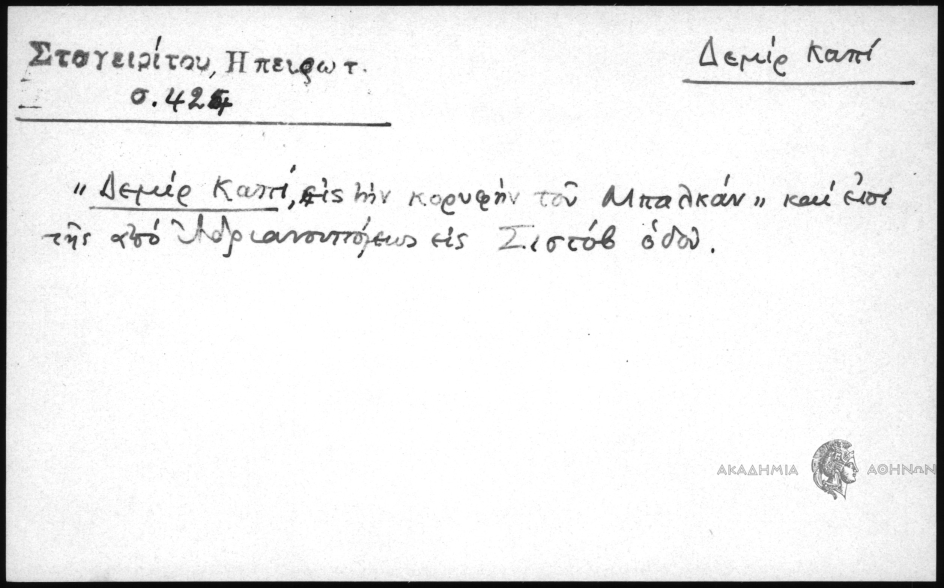 Σταγειρίτου, Ηπειρωτ.
σ. 424
Δεμίρ Καπί
"Δεμίρ Καπί, εἰς τὴν κορυφὴν τοῦ Μπαλκάν" καὶ ἐπὶ
τῆς ἀπὸ Ἀδριανουπόλεως εἰς Σιστόβ ὁδοῦ.
ΑΚΑΔΗΜΙΑ ΑΘΗΝΩΝ